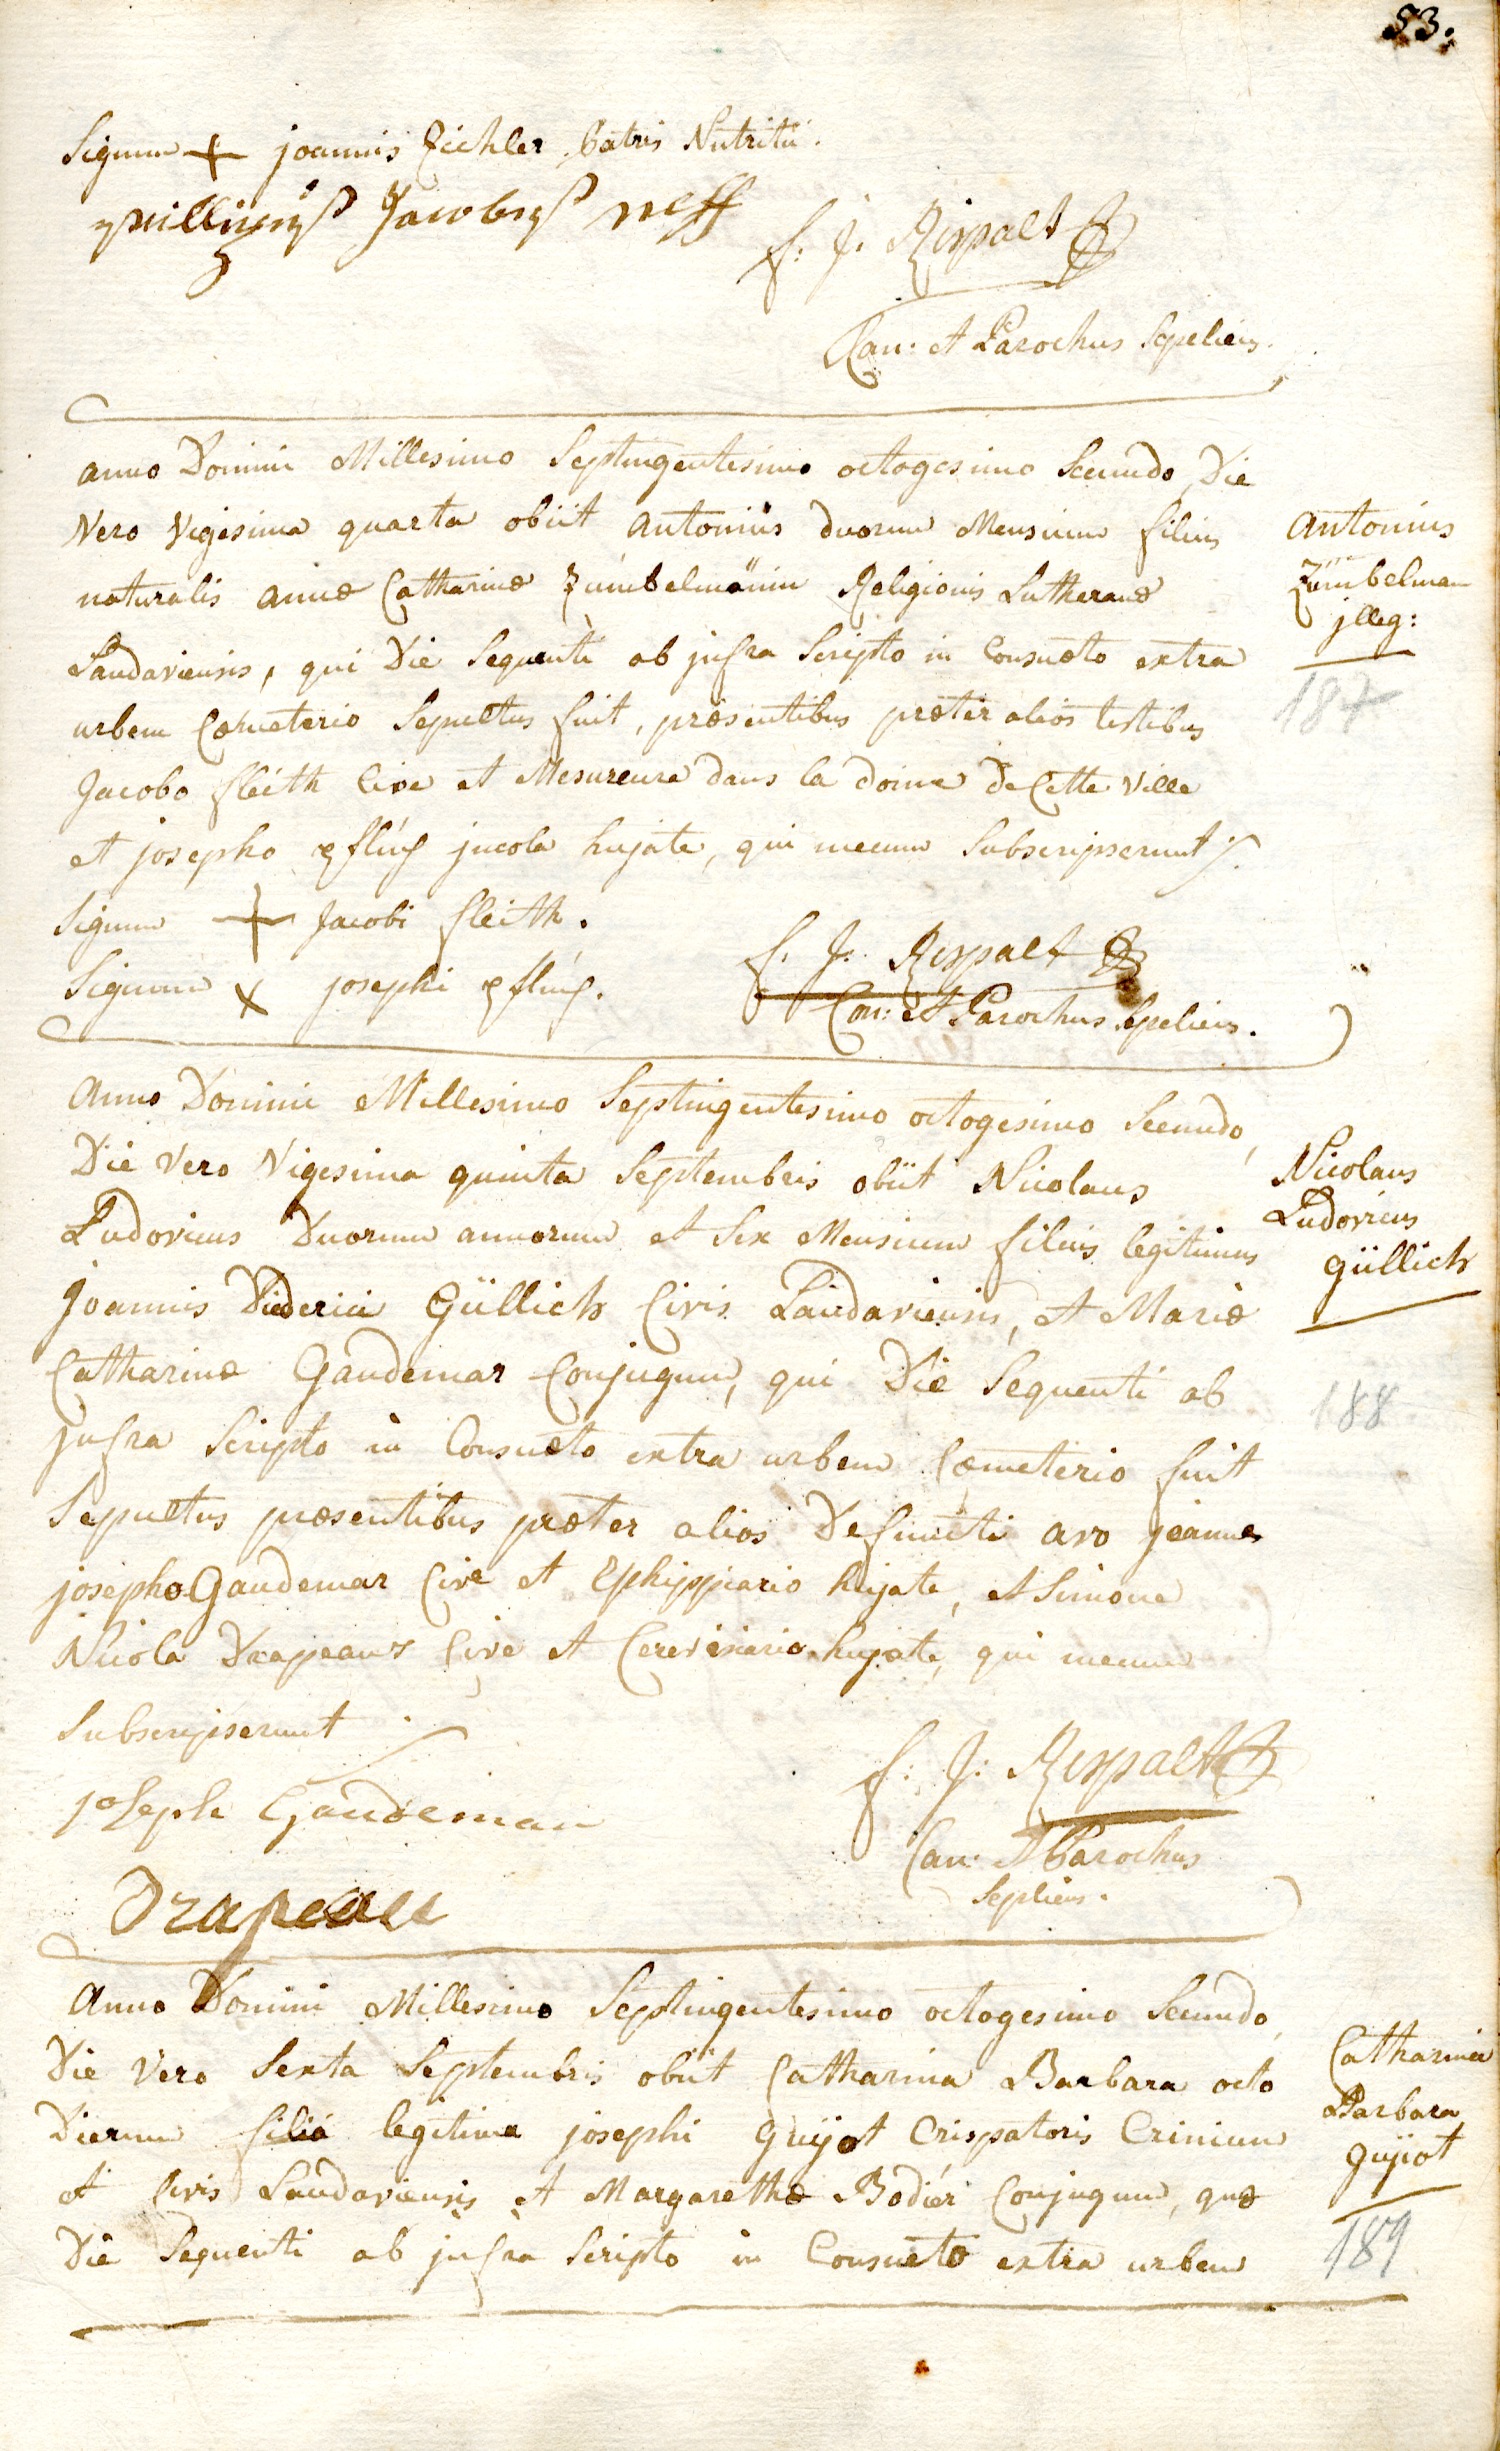 53.
Signum + joannis Eichler Patris Nutritii.
Jacobus Neff
f: J: Rispalt
Can: et Parochus Sepeliens.
anno Domini Millesimo Septingentesimo octogesimo Secundo, Die
Vero Vigesima quarta obiit antonius duorum Mensium filius
naturalis annæ Catharinæ Zümbelmännin Religionis Lutheranæ
Landaviensis, qui Die Sequenti ab jnfra Scripto in Consueto extra
urbem Cœmeterio Sepultus fuit, præsentibus præter alios testibus
Jacobo fleith Cive et Mesureure dans la doüne de Cette Ville
et josepho pflúg jncola hujate, qui mecum Subscripserunt
Signum + Jacobi fleith.
Signum x josephi pflúg.
f. J: Rispalt
Can: et Parochus Sepeliens.
antonius
Zümbelman
jlleg:
187
Anno Domini Millesimo Septingentesimo octogesimo Secundo,
Die Vero Vigesima quinta Septembris obiit Nicolaus
Ludovicus Duorum annorum et Sex Mensium filius legitimus
Joannis Diederici Güllich Civis Landaviensis, et Mariæ
Catharinæ Gaudemar Conjugum, qui Die Sequenti ab
jnfra Scripto in Consueto extra urbem Cœmeterio fuit
Sepultus præsentibus præter alios Defuncti avo joanne
josepho Gaudemar Cive et Ephippiario hujate, et Simone
Nicola Drapeaux Cive et Cerevisiario hujate, qui mecum
Subscripserunt
joseph Gaudemar
Drapeau
f: J: Rispalt
Can: et Parochus
Sepliens.
Nicolaus
Ludovicus
güllich
188
Anno Domini Millesimo Septingentesimo octogesimo Secundo,
Die Vero Sexta Septembris obiit Catharina Barbara octo
Dierum filia legitima josephi Guijot Crispatoris Crinium
et Civis Landaviensis et Margarethæ Bodier Conjugum, quæ
Die Sequenti ab jnfra Scripto in Consueto extra urbem
Catharina
Barbara
guijot
189